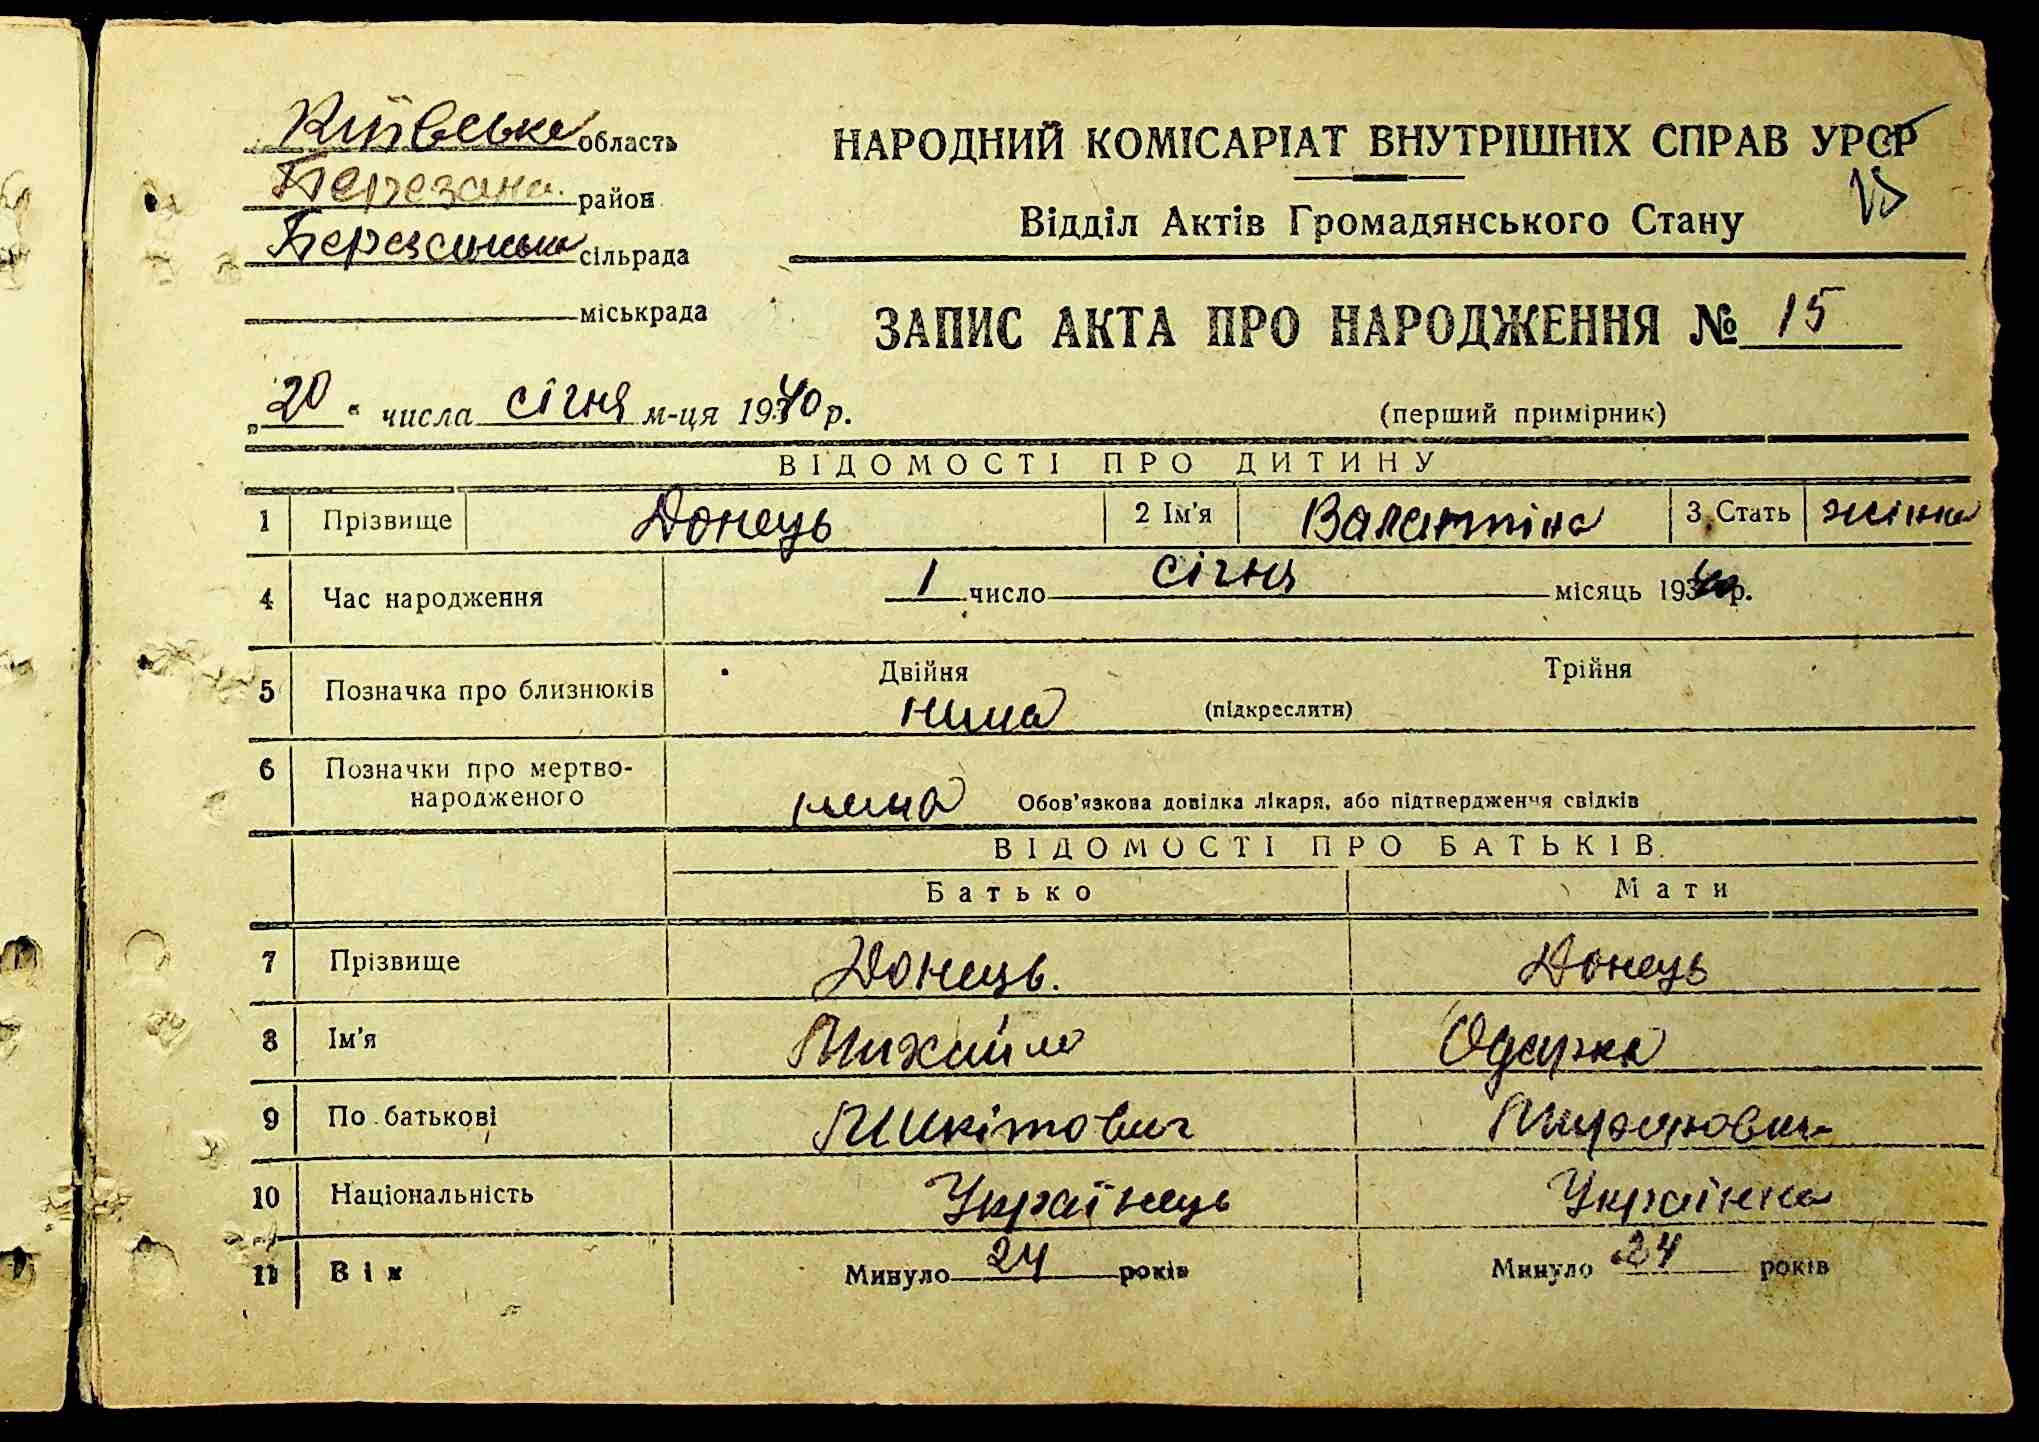 Київська область
Березан. район
Березанська сільрада
міськрада
НАРОДНИЙ КОМІСАРІАТ ВНУТРІШНІХ СПРАВ УРСР
Відділ Актів Громадянського Стану
ЗАПИС АКТА ПРО НАРОДЖЕННЯ № 15
„20“ числа січня м-ця 1940 р.
(перший примірник)
ВІДОМОСТІ ПРО ДИТИНУ
1 Прізвище Донець 2 Ім'я Валентина 3 Стать жіноча
4 Час народження 1 число січня місяць 1940 р.
5 Позначка про близнюків Двійня Трійня
нима (підкреслити)
6 Позначки про мертво-
народженого нима Обов'язкова довідка лікаря, або підтвердження свідків
ВІДОМОСТІ ПРО БАТЬКІВ
Батько Мати
7 Прізвище Донець. Донець
8 Ім'я Михайло Одарка
9 По батькові Микітович
10 Національність Українець Українка
11 Вік Минуло 24 років Минуло 24 років